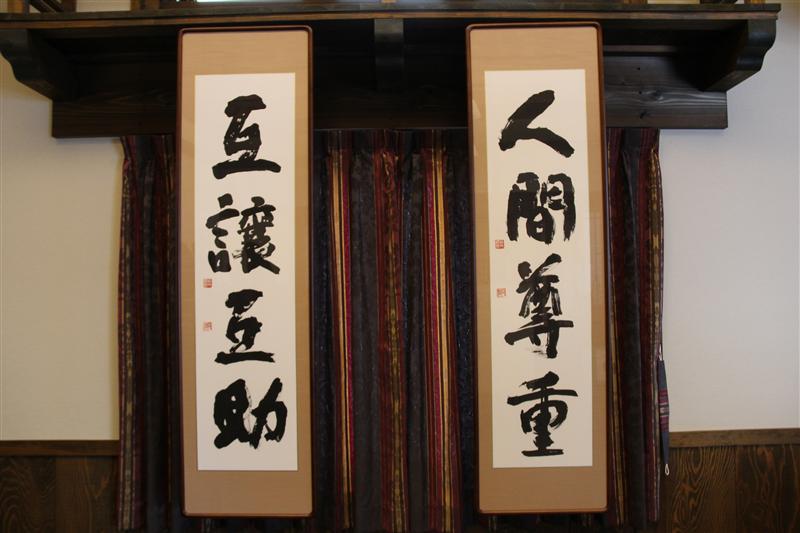 人間尊重
互譲互助